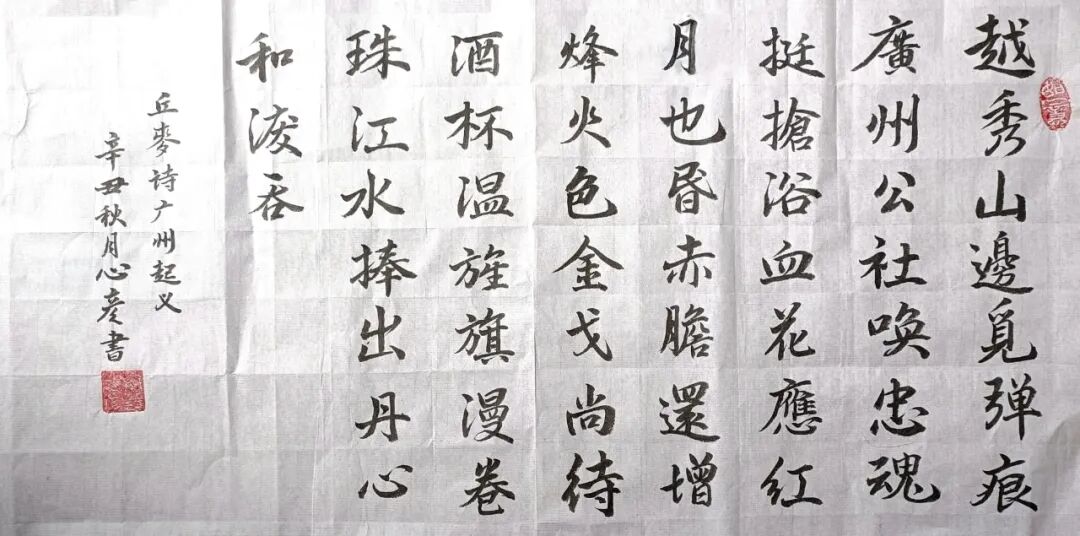 越秀山邊覓弹痕
廣州公社唤忠魂
挺搶浴血花應红
月也昏赤膽還增
烽火色金戈尚待
酒杯温旌旗漫卷
珠江水捧出丹心
和淚吞
丘麥诗广州起义
辛丑秋月心彦書